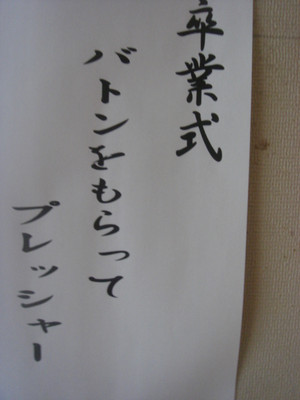 卒業式
バトンをもらって
プレッシャー